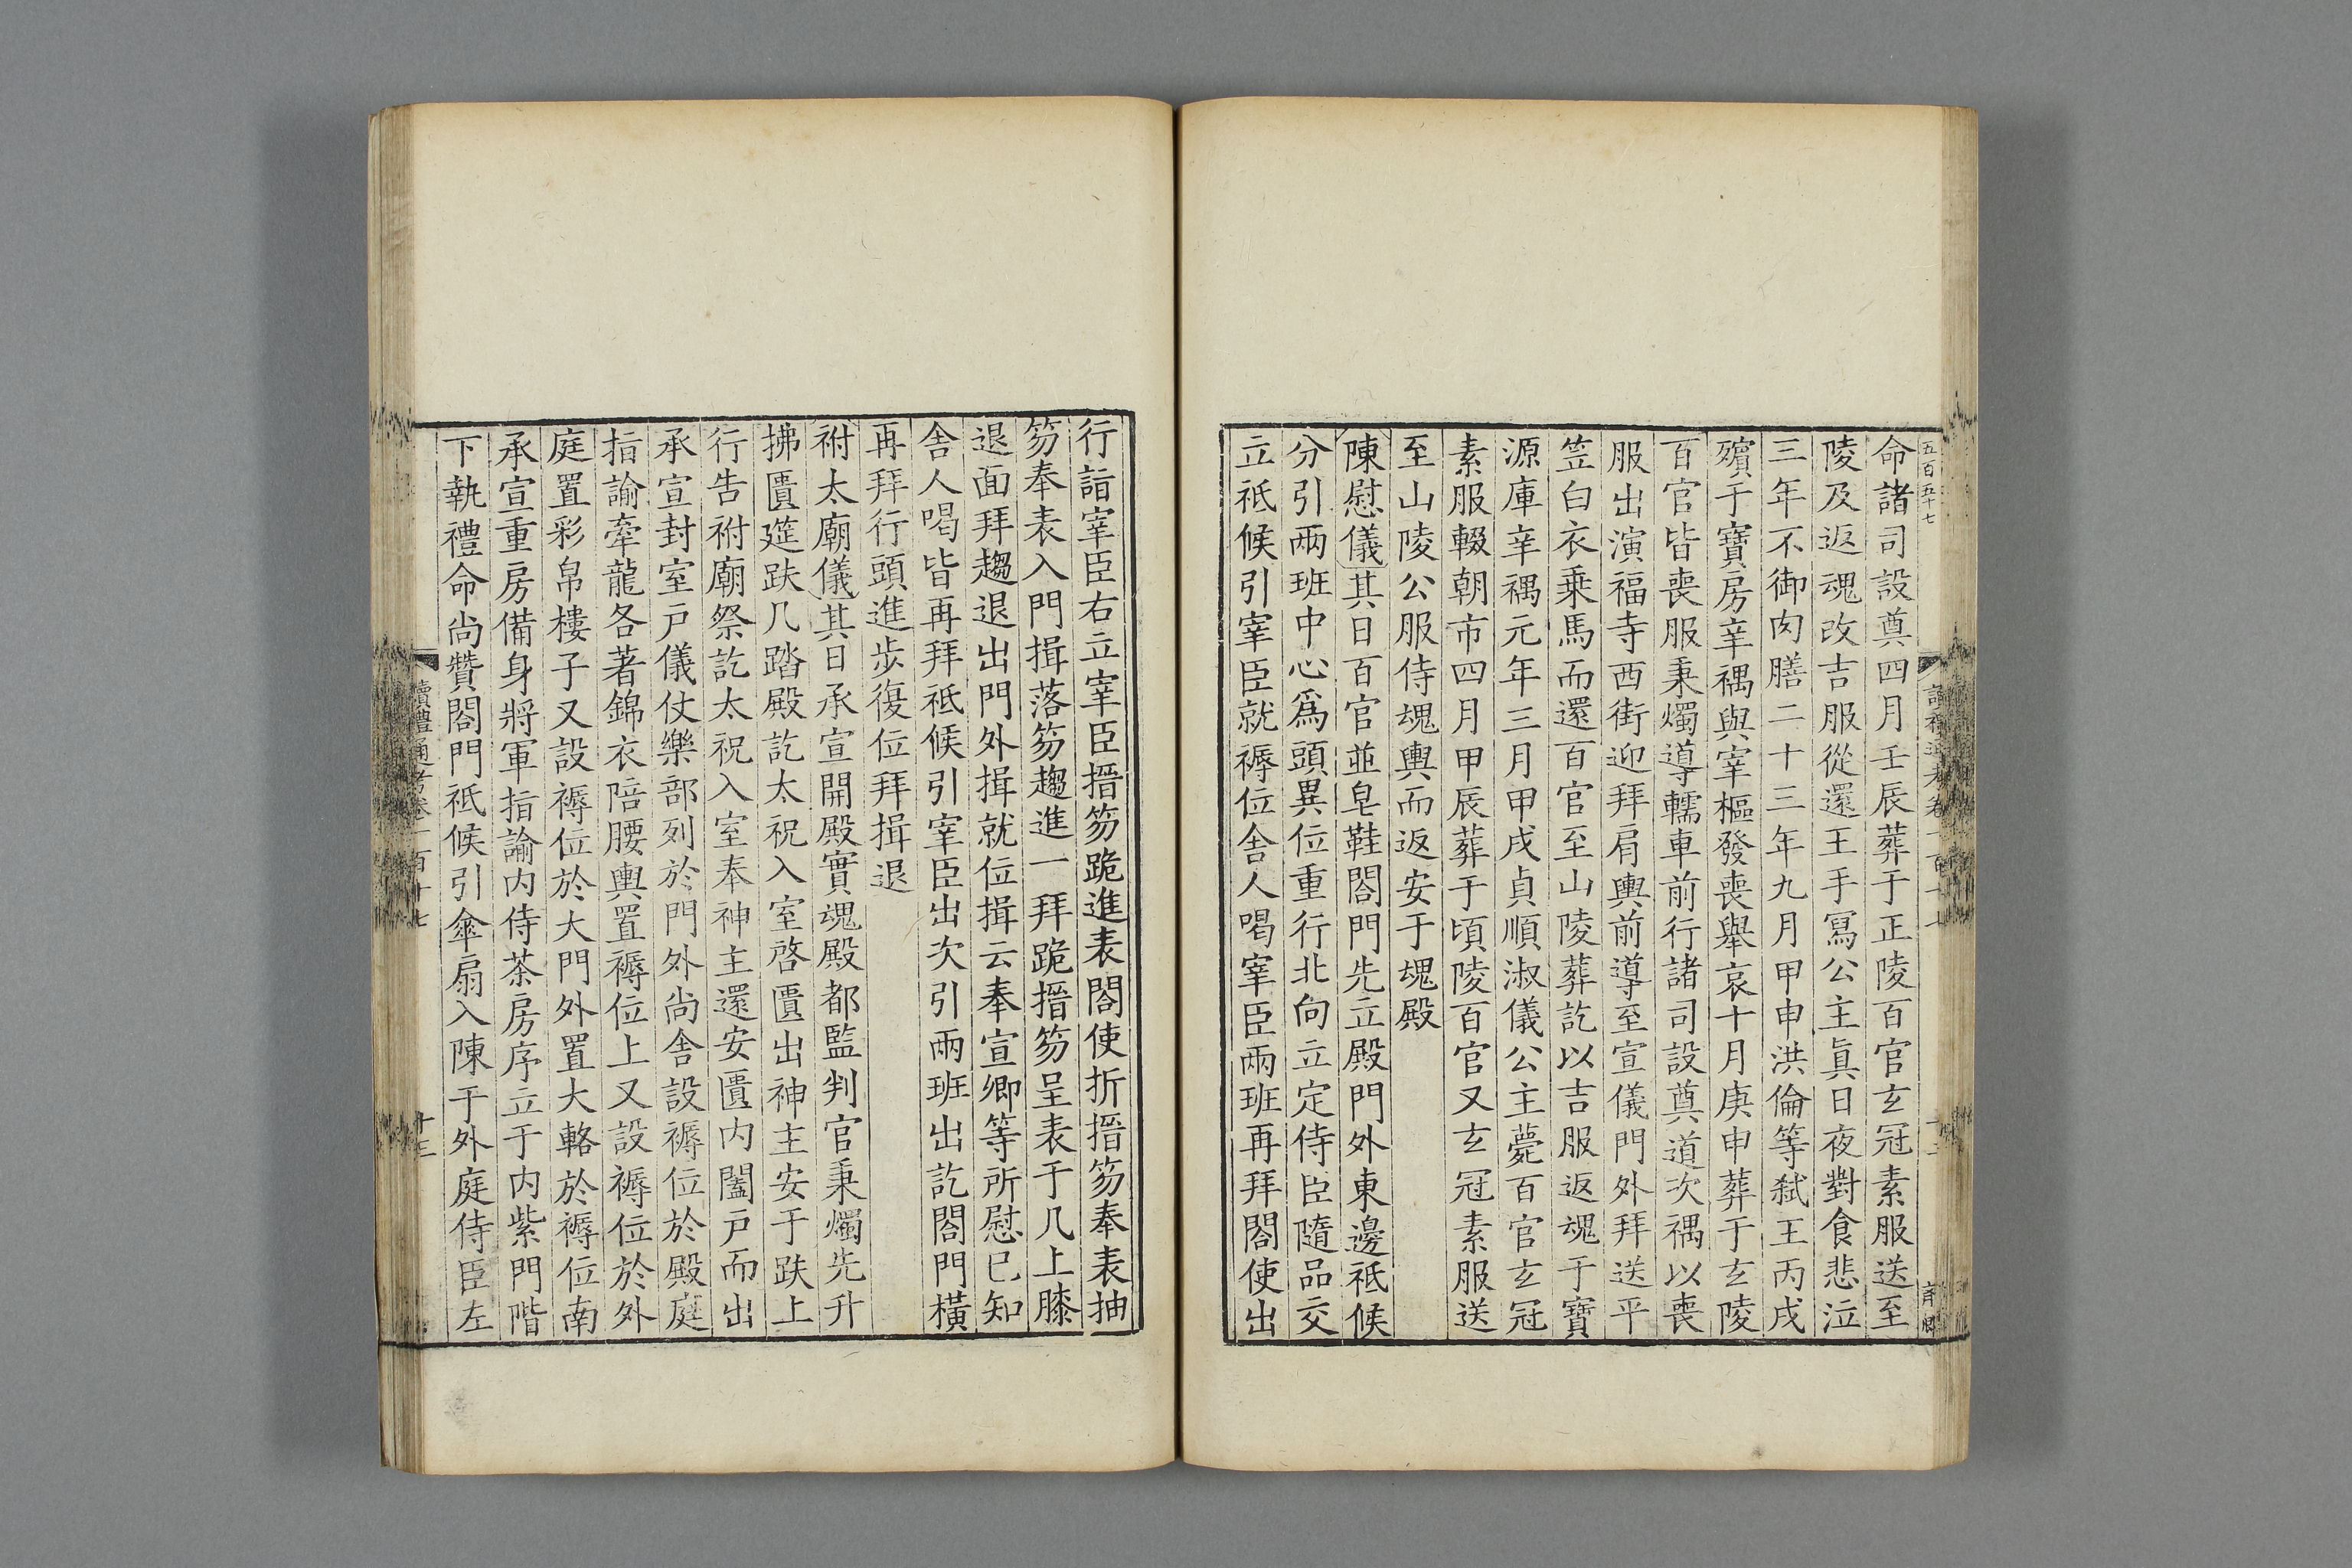 五百五十七
命諸司設奠四月壬辰葬于正陵百官玄冠素服送至
陵及返魂改吉服從還王手寫公主眞日夜對食悲泣
三年不御肉膳二十三年九月甲申洪倫等弑王丙戌
殯于寶房辛禑與宰樞發喪舉哀十月庚申葬于玄陵
百官皆喪服秉燭導轜車前行諸司設奠道次禑以喪
服出演福寺西街迎拜肩輿前導至宣儀門外拜送平
笠白衣乗馬而還百官至山陵葬訖以吉服返魂于寶
源庫辛禑元年三月甲戌貞順淑儀公主薨百官玄冠
素服輟朝市四月甲辰葬于頃陵百官又玄冠素服送
至山陵公服侍魂輿而返安于魂殿
陳慰儀其日百官並皂鞋閤門先立殿門外東邊祗候
分引兩班中心爲頭異位重行北向立定侍臣隨品交
立祗候引宰臣就褥位舍人喝宰臣兩班再拜閤使出
行詣宰臣右立宰臣搢笏跪進表閤使折搢笏奉表抽
笏奉表入門揖落笏趨進一拜跪搢笏呈表于几上膝
退面拜趨退出門外揖就位揖云奉宣卿等所慰已知
舍人喝皆再拜祗候引宰臣出次引兩班出訖閤門橫
再拜行頭進步復位拜揖退
祔太廟儀其日承宣開殿實魂殿都監判官秉燭先升
拂匱筵趺几踏殿訖太祝入室啓匱出神主安于趺上
行告祔廟祭訖太祝入室奉神主還安匱内闔戸而出
承宣封室戸儀仗樂部列於門外尚舍設褥位於殿庭
指諭牽龍各著錦衣陪腰輿置褥位上又設褥位於外
庭置彩帛樓子又設褥位於大門外置大輅於褥位南
承宣重房備身將軍指諭内侍茶房序立于内紫門階
下執禮命尚贊閤門祗候引傘扇入陳于外庭侍臣左
讀禮通考卷一百十七
十三